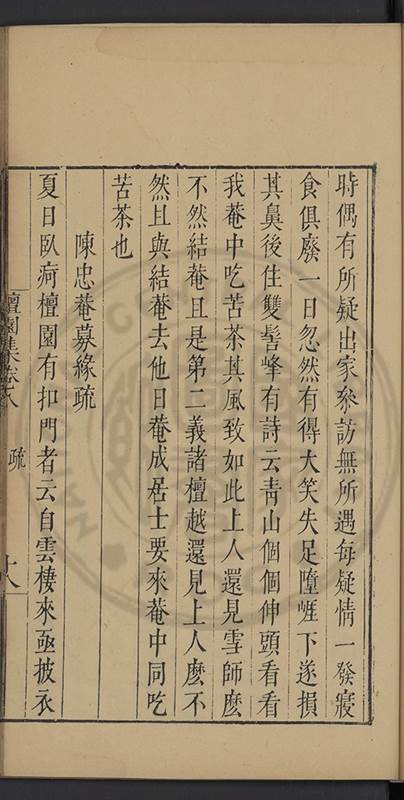 時偶有所疑出家叅訪無所遇每疑情一發寢
食俱廢一日忽然有得大笑失足墮崕下遂損
其鼻後住雙髻峰有詩云靑山個個伸頭看看
我菴中吃苦茶其風致如此上人還見雪師麽
不然結菴且是第二義諸檀越還見上人麽不
然且與結菴去他日菴成居士要來菴中同吃
苦茶也
陳忠菴募緣疏
夏日臥病檀園有扣門者云自雲棲來亟披衣
檀園集卷八
疏
十八